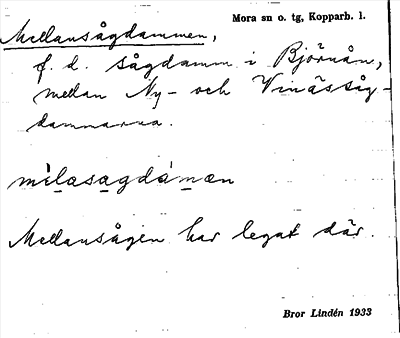 Mora sn o. tg, Kopparb. l.
Mellansågdammen,
f. d. sågdamm i Björnån,
mellan Ny- och Vinässåg-
dammarna.
Mellansågen har legat där.
Bror Lindén 1933